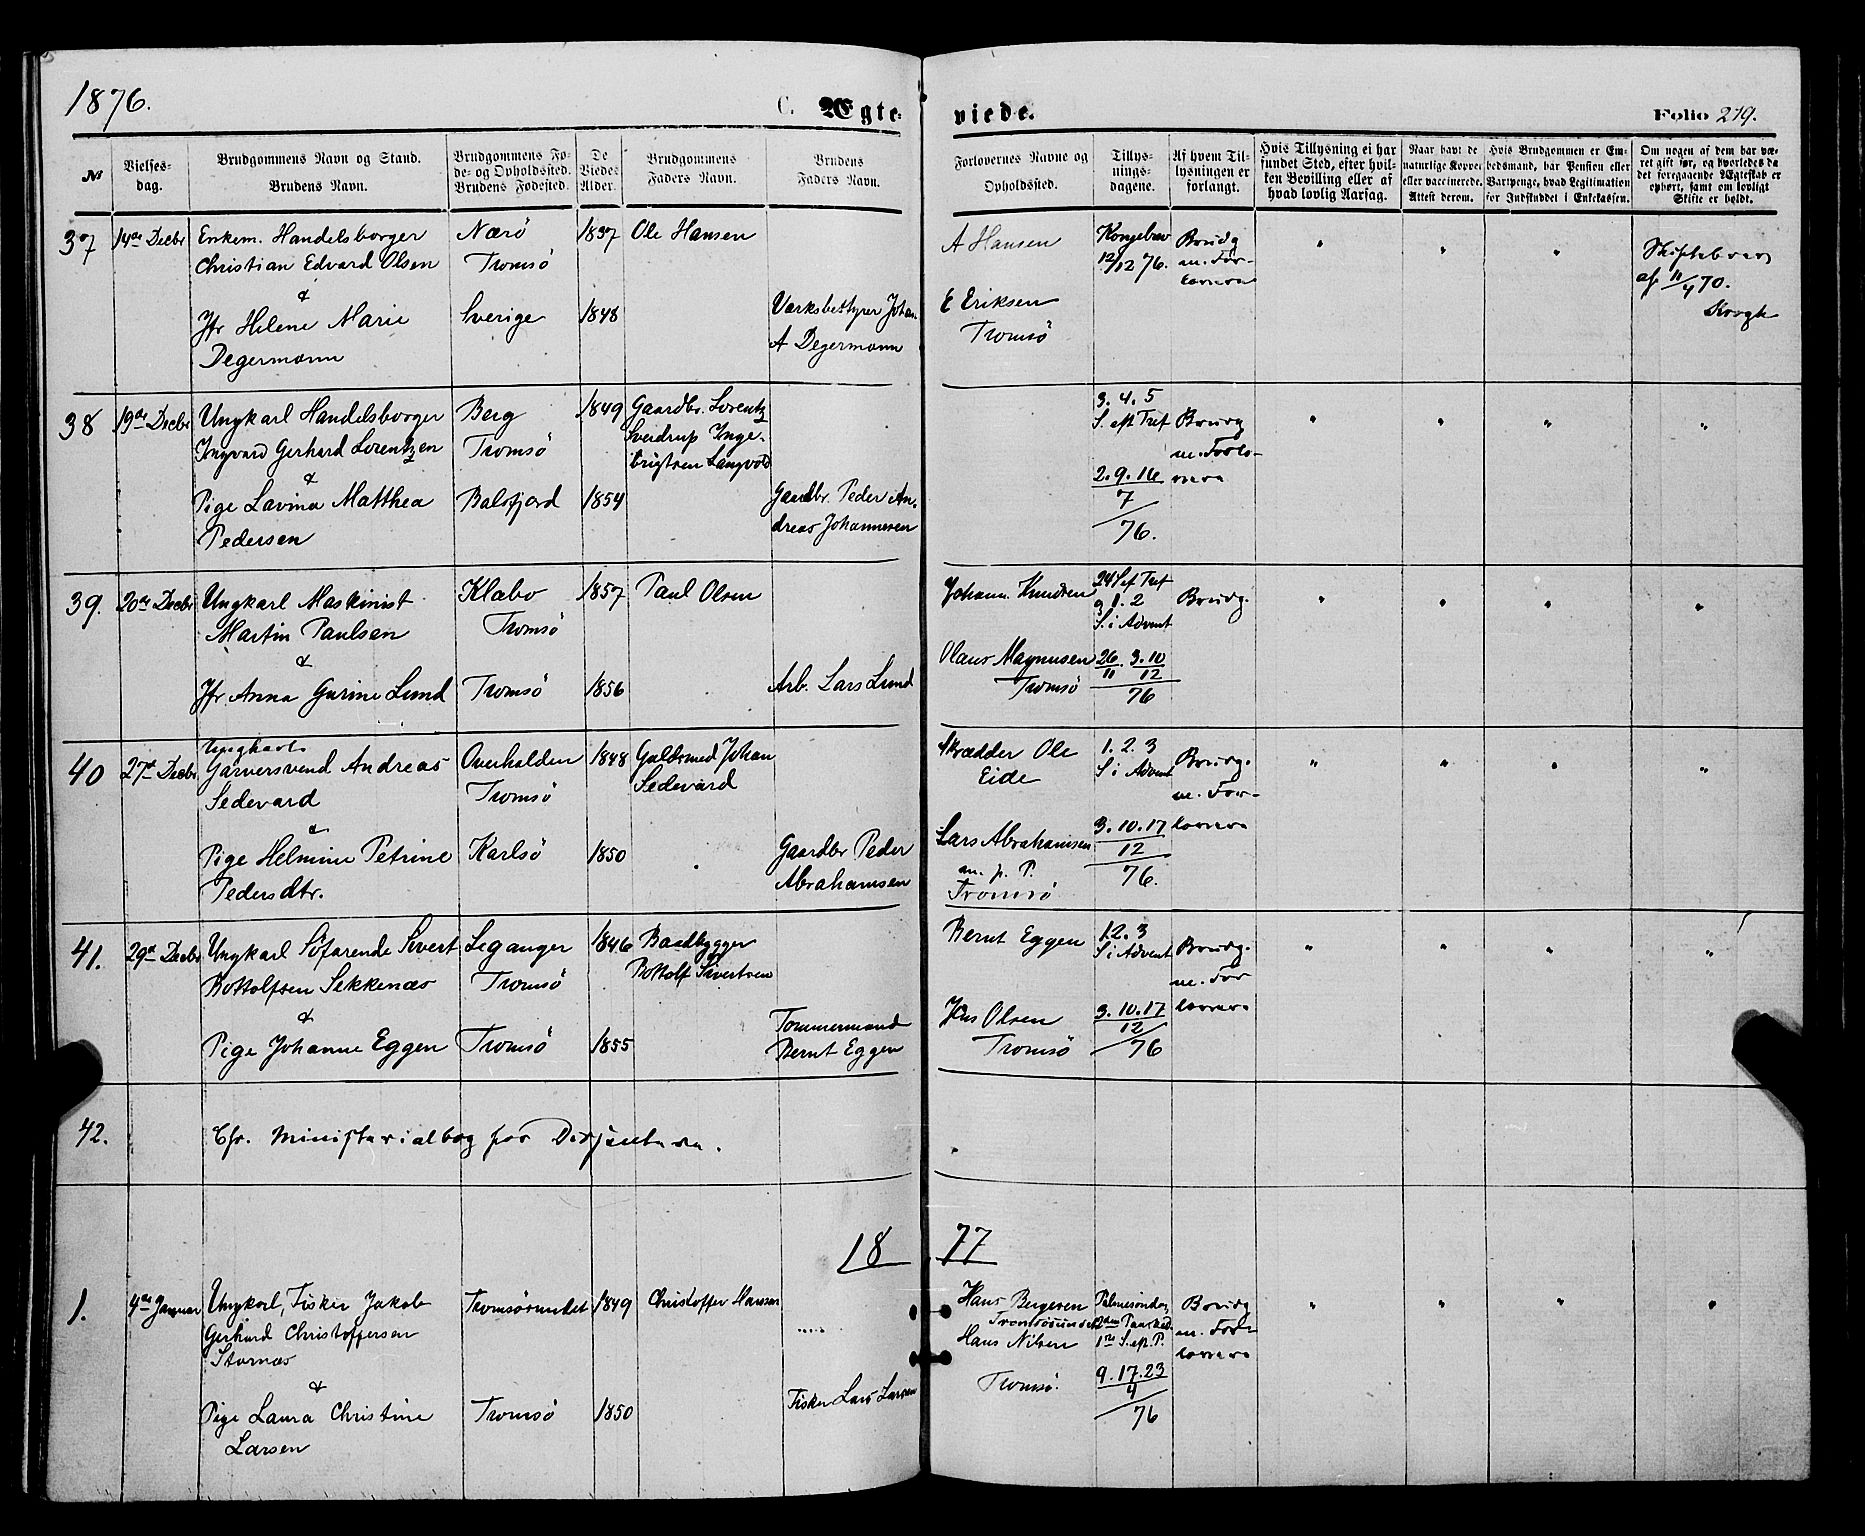 1876.
C. Ægte-
viede.
Folio 279.
№
Vielses-
dag.
Brudgommens Navn og Stand.
Brudens Navn.
Brudgommens Fø-
de- og Opholdssted.
Brudens Fødested.
De
Viedes
Alder.
Brudgommens
Faders Navn.
Brudens
Faders Navn.
Forlovernes Navne og
Opholdssted.
Tillys-
nings-
dagene.
Af hvem Til-
lysningen er
forlangt.
Hvis Tillysning ei har
fundet Sted, efter hvil-
ken Bevilling eller af
hvad lovlig Aarsag.
Naar havt de
naturlige Kopper
eller vaccinerede.
Attest derom.
Hvis Brudgommen er Em-
bedsmand, har Pension eller
Vartpenge, hvad Legitimation
for Indskuddet i Enkekassen.
Om nogen af dem har væ-
ret gift før, og hvorledes da
det foregaaende Ægteskab er
ophørt, samt om lovligt
Skifte er holdt.
37 14de Decbr Enkem. Handelsborger Nærö 1837 Ole Hansen A Hansen Kongebrev Brudg " " " Skiftebrev
Christian Edvard Olsen Tromsö 12/12 76. m. For- af 11/4 70.
& lovere Krogh
Jfr Helene Marie Sverige 1848 Værksbestyrer Johan E Eriksen
Degermann A Degermann Tromsö
38 19de Decbr Ungkarl Handelsborger Berg 1849 Gaardbr. Lorentz 3. 4. 5 Brudg " " " "
Ingvard Gerhard Lorentzen Tromsö Sverdrup Inge- S. eft Tref m. Forlo-
& brigtsen Langvold 2. 9. 16 vere
Pige Lavina Matthea Balsfjord 1854 Gaardbr. Peder An- 7
Pedersen dreas Johannesen 76.
39. 20de Decbr Ungkarl Maskinist Klæbo 1857 Paul Olsen Johann. Knudsen 24 S ef Tref Brudg. " " " "
Martin Paulsen Tromsö g 1. 2
& S. i Advent
Jfr. Anna Gurine Lund Tromsö 1856 Arb. Lars Lund Olaus Magnusen 26/11 3.10/12
Tromsö 76
40 27de Decbr Ungkarl
Garversvend Andreas Overhalden 1848 Guldsmed Johan Skrædder Ole 1. 2. 3 Brudg. " " " "
Sedevard Tromsö Sedevard Eide S i Advent m. For-
& 3. 10. 17 lovere
Pige Helmine Petrine Karlsö 1850 Gaardbr Peder Lars Abrahamsen 12
Pedersdtr. Abrahamsen m. p. P. 76.
Tromsö
41. 29de Decbr Ungkarl Söfarende Sivert Leganger 1846 Baadbygger Bernt Eggen 1 2. 3 Brudg. " " " "
Bottolfsen Sekkenæs Tromsö Bottolf Sivertsen S i Advent m. For
& 3. 10. 17 lovere
Pige Johanne Eggen Tromsö 1855 Tømmermand Jens Olsen 12
Bernt Eggen Tromsö 76
42. Cfr. Ministerialbog for Dissentere.
18 77
1. 4de Januar Ungkarl, Fisker Jakob Tromsösundet 1849 Christoffer Hansen Hans Bergersen Palmesöndag Brudg " " " "
Gerhard Christoffersen ..... Tromsösundet 2den Paaskd. m. For
Stornæs Hans Nilsen 1ste S. eft. P. lovere
& Tromsö. 9. 17. 23
Pige Laura Christine Tromsö 1850 Fisker Lars Larsen 4
Larsen 76